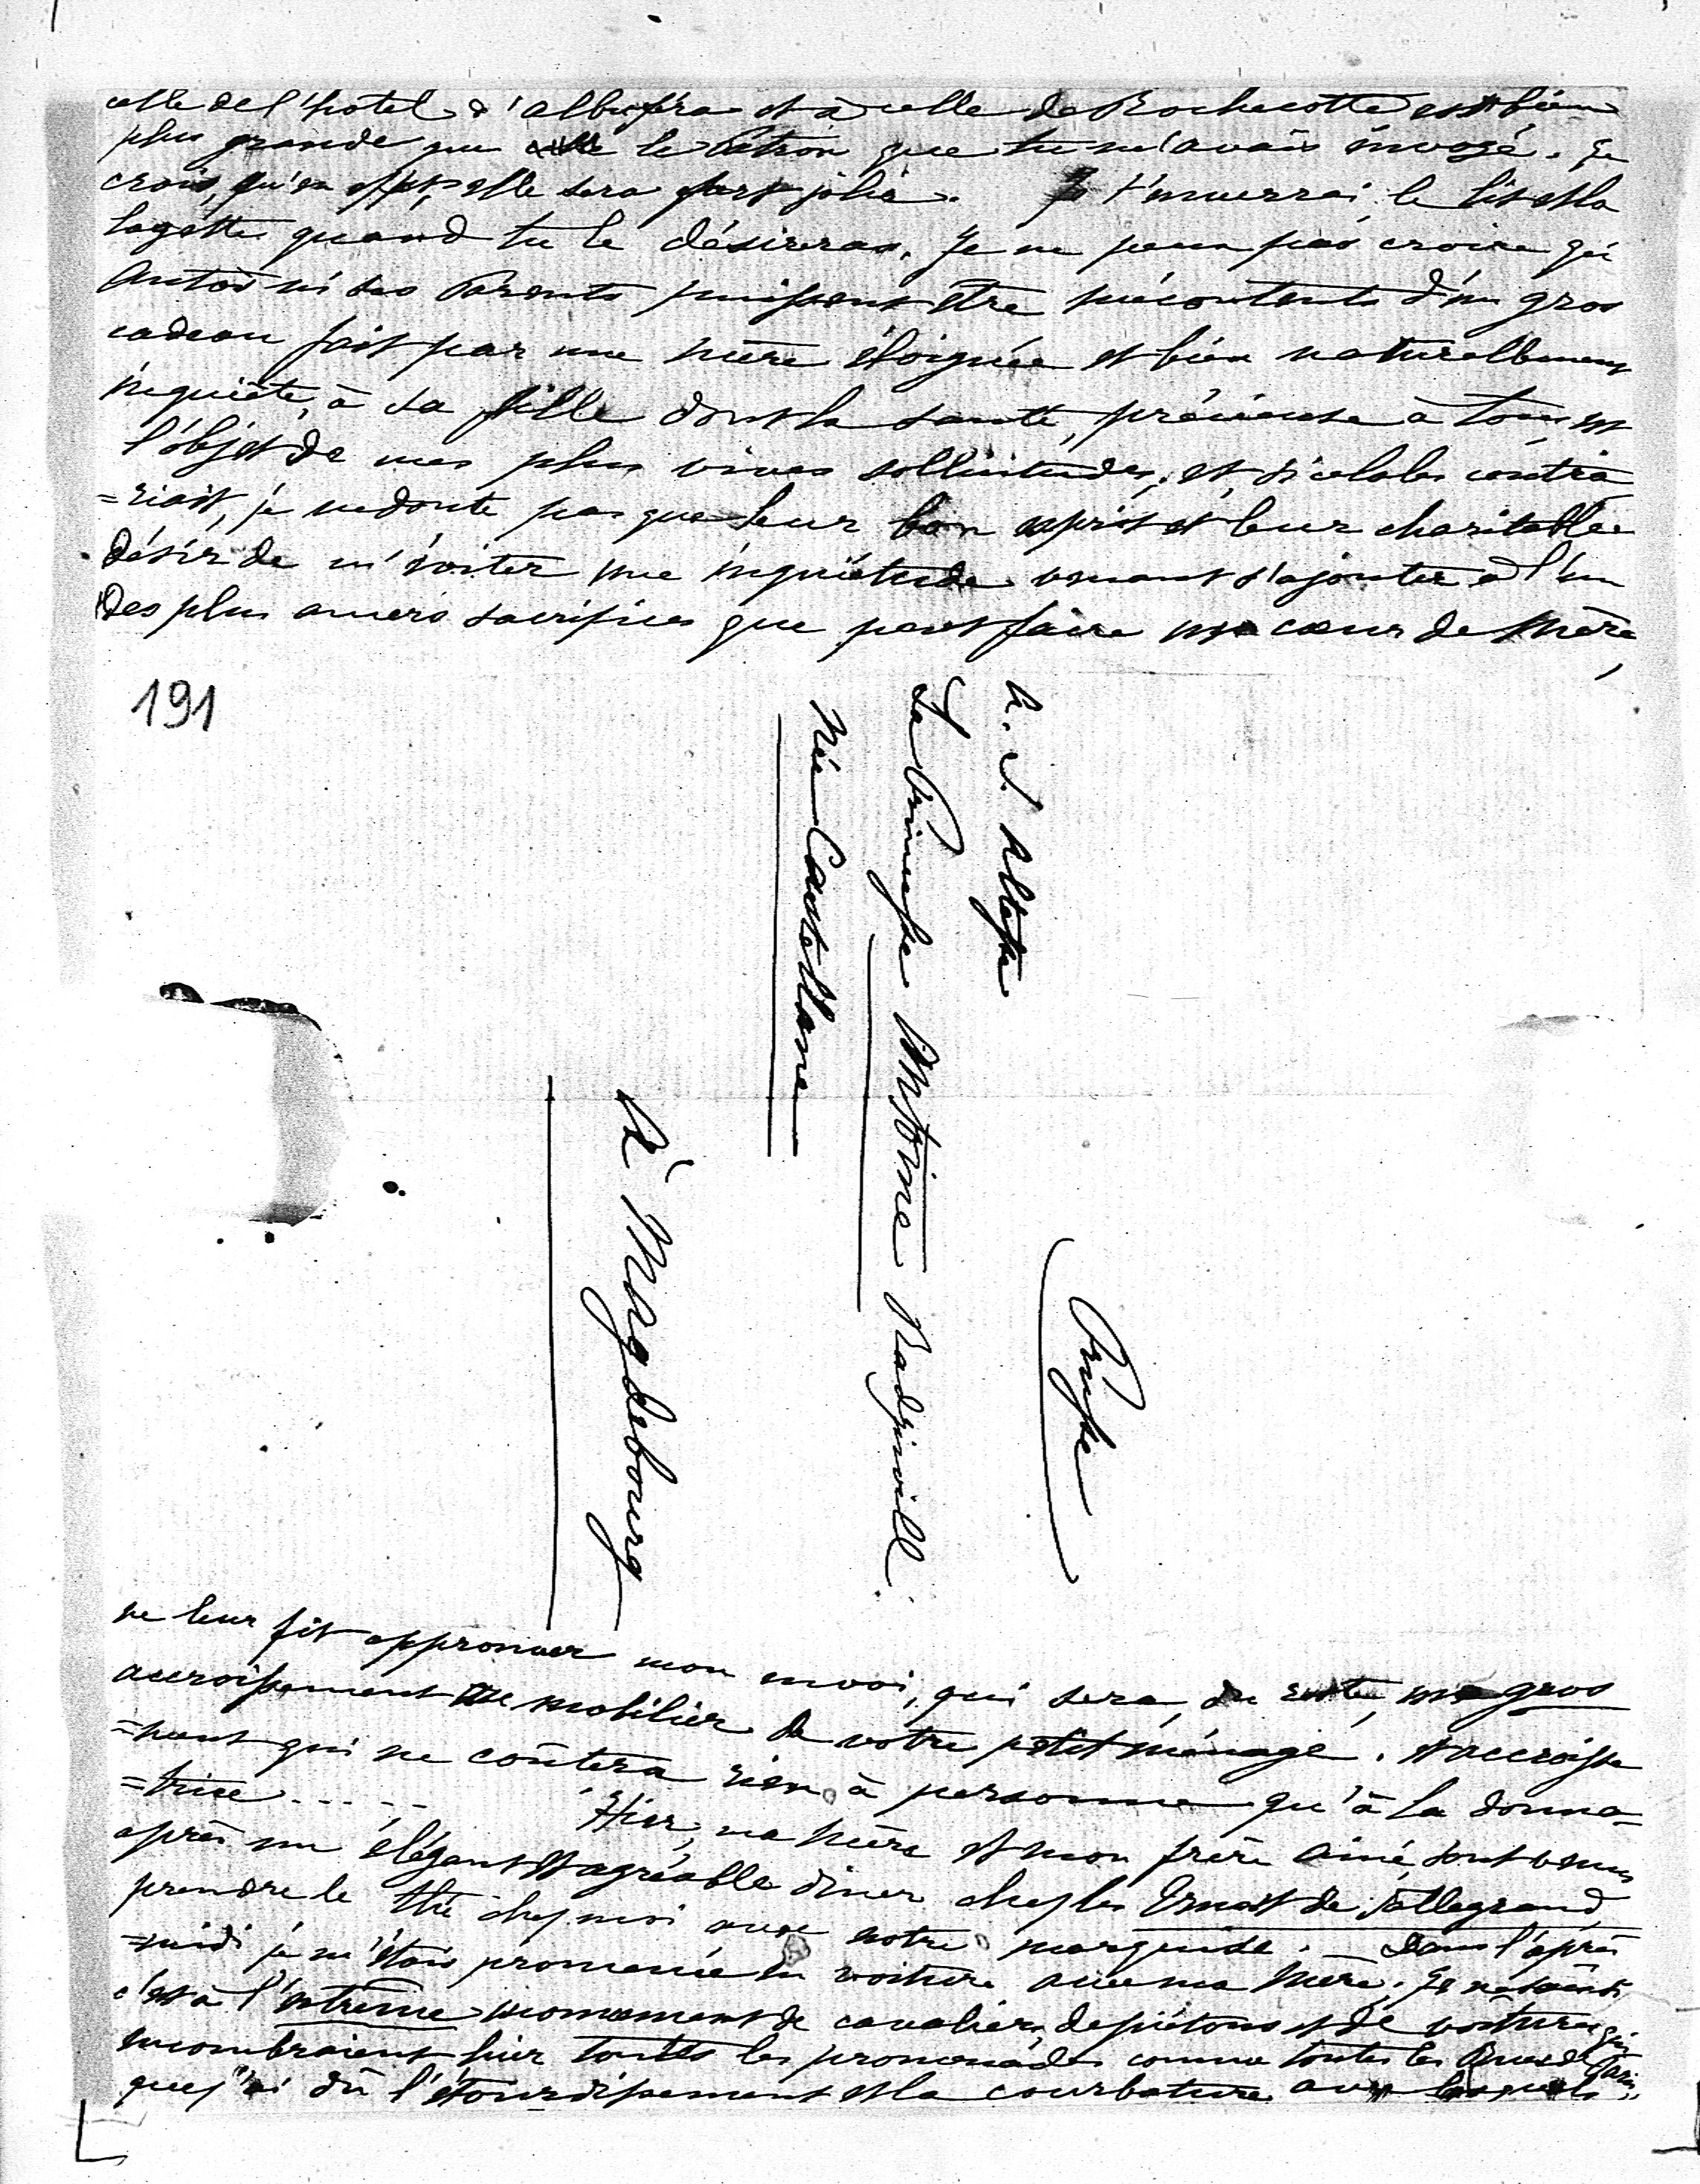 celle de l'hotel d'albuféra et à celle de Rochecotte est bien
plus grande que le Patron que tu m'avais envoyé. Je
crois, qu'en effet, elle sera fort jolie. Je t'enverrai le lit et la
layette quand tu le désireras. Je ne peux pas croire qu'
Antoine ni ses Parents puissent être mécontents d'un gros
cadeau fait par une mère éloignée et bien naturellement
inquiète, à sa fille dont la santé, précieuse à tous, est
l'objet de mes plus vives sollicitudes; et, si cela les contra
=riait, je ne doute pas que leur bon esprit et leur charitable
désir de m'éviter une inquiétude venant s'ajouter à l'un
des plus amers sacrifices que peut faire un cœur de mère,
191
A. S. Altesse
La Princesse Antoine Radziwill.
Née Castellane
à Magdebourg
Prusse
ne leur fit approuver mon envoi, qui sera, du reste, un gros
accroissement de mobilier de votre petit ménage, et accroisse
=ment qui ne coûtera rien à personne qu'à la dona=
=trice..... Hier, ma mère et mon frère aîné, sont venus
après un élégant et agréable diner chez les Ernest de Talleyrand
prendre le thé chez moi avec notre marquise. Dans l'après
=midi je m'étais promenée en voiture avec ma mère;
c'est à l'extrême mouvement de cavaliers, de piétons et de voitures qui
encombraient hier toutes les promenades comme toutes les rues de Paris,
que j'ai dû l'étourdissement et la courbature